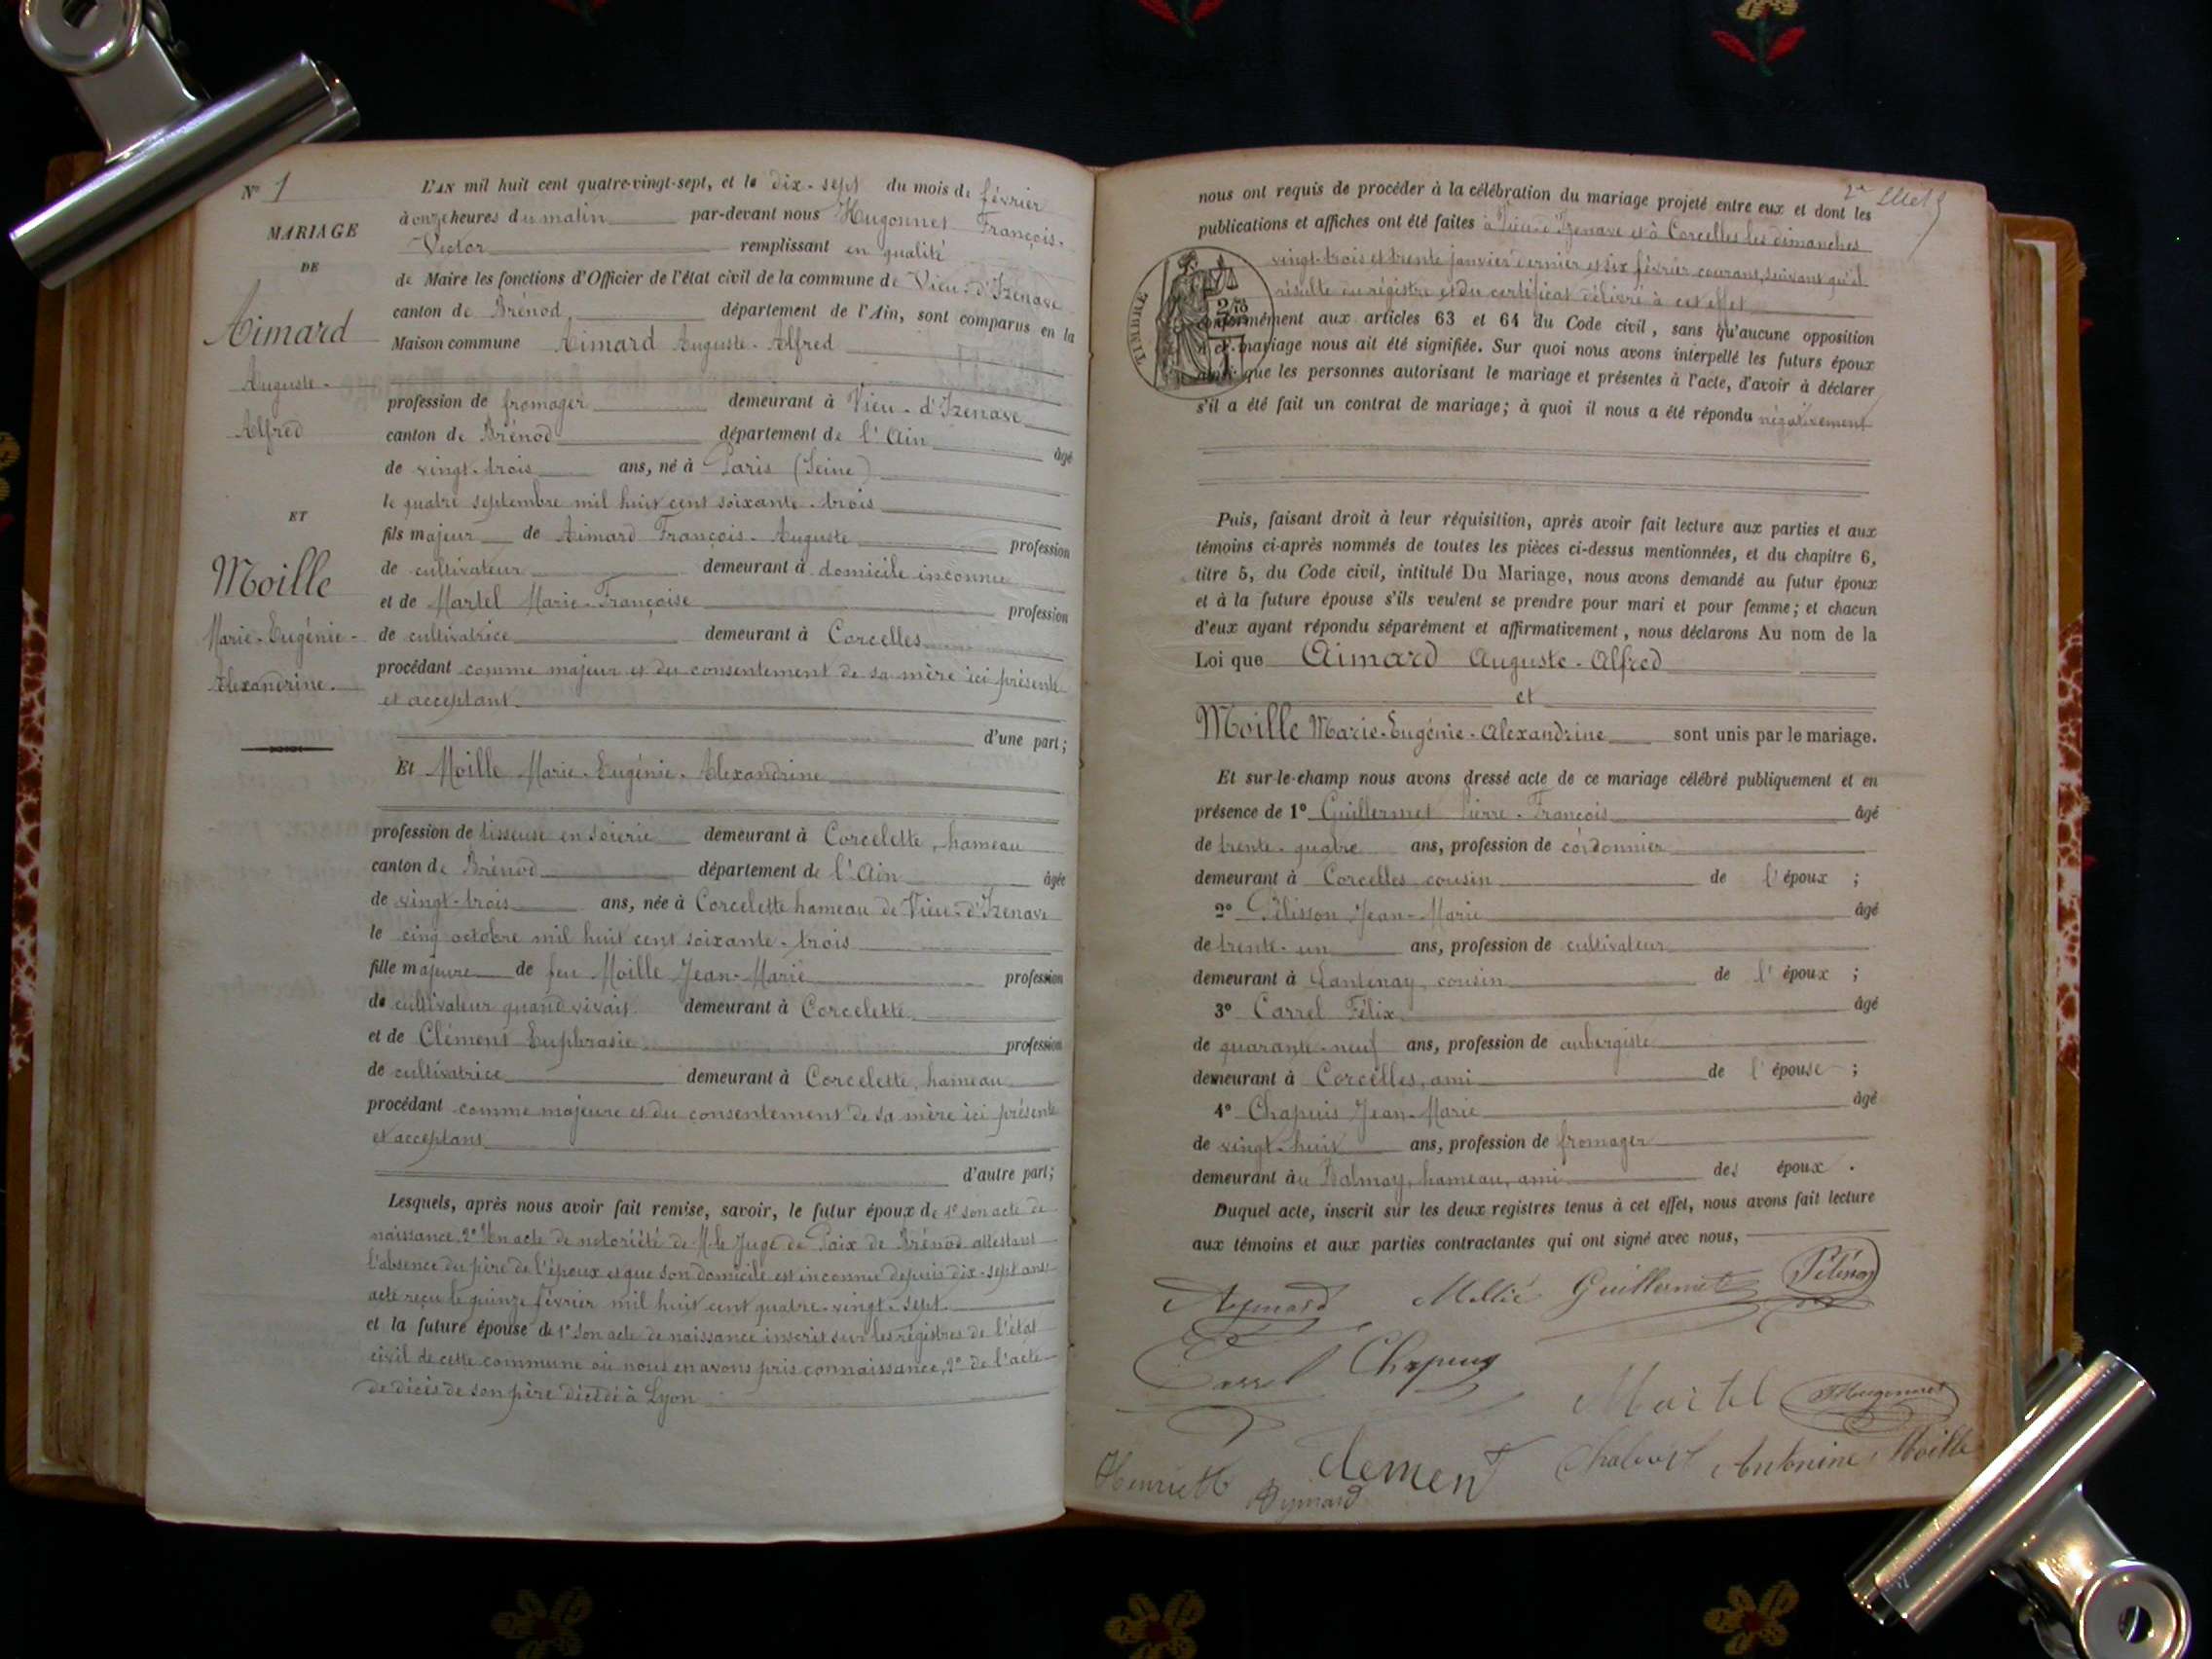 N° 1
MARIAGE
DE
Aimard
Auguste-
Alfred
ET
Moille
Marie-Eugénie-
Alexandrine.
L'AN mil huit cent quatre-vingt-sept, et le dix-sept du mois de février
à onze heures du matin par-devant nous Hugonnet François-
Victor remplissant en qualité
de Maire les fonctions d'Officier de l'état civil de la commune de Vieu-d'Izenave
canton de Brénod département de l'Ain, sont comparus en la
Maison commune Aimard Auguste-Alfred
profession de fromager demeurant à Vieu-d'Izenave
canton de Brénod département de l'Ain âgé
de vingt-trois ans, né à Paris (Seine)
le quatre septembre mil huit cent soixante-trois
fils majeur de Aimard François-Auguste profession
de cultivateur demeurant à domicile inconnu
et de Martel Marie-Françoise profession
de cultivatrice demeurant à Corcelles
procédant comme majeur et du consentement de sa mère ici présente
et acceptant
d'une part;
Et Moille Marie-Eugénie-Alexandrine
profession de tisseuse en soierie demeurant à Corcelette, hameau
canton de Brénod département de l'Ain âgée
de vingt-trois ans, née à Corcelette hameau de Vieu-d'Izenave
le cinq octobre mil huit cent soixante-trois
fille majeure de feu Moille Jean-Marie profession
de cultivateur quand vivait demeurant à Corcelette
et de Clément Euphrasie profession
de cultivatrice demeurant à Corcelette, hameau
procédant comme majeure et du consentement de sa mère ici présente
et acceptant
d'autre part;
Lesquels, après nous avoir fait remise, savoir, le futur époux de 1° son acte de
naissance, 2° Un acte de notoriété de M. le Juge de Paix de Brénod attestant
l'absence du père de l'époux et que son domicile est inconnu depuis dix-sept ans
acte reçu le quinze février mil huit cent quatre-vingt-sept
et la future épouse de 1° son acte de naissance inscrit sur les registres de l'état
civil de cette commune où nous en avons pris connaissance, 2° de l'acte
de décès de son père décédé à Lyon
nous ont requis de procéder à la célébration du mariage projeté entre eux et dont les
publications et affiches ont été faites à Vieu-d'Izenave et à Corcelles les dimanches
vingt-trois et trente janvier dernier et six février courant, suivant qu'il
résulte du régistre et du certificat délivré à cet effet
TIMBRE
conformément aux articles 63 et 64 du Code civil, sans qu'aucune opposition
à ce mariage nous ait été signifiée. Sur quoi nous avons interpellé les futurs époux
ainsi que les personnes autorisant le mariage et présentes à l'acte, d'avoir à déclarer
s'il a été fait un contrat de mariage; à quoi il nous a été répondu négativement
Puis, faisant droit à leur réquisition, après avoir fait lecture aux parties et aux
témoins ci-après nommés de toutes les pièces ci-dessus mentionnées, et du chapitre 6,
titre 5, du Code civil, intitulé Du Mariage, nous avons demandé au futur époux
et à la future épouse s'ils veulent se prendre pour mari et pour femme; et chacun
d'eux ayant répondu séparément et affirmativement, nous déclarons Au nom de la
Loi que Aimard Auguste-Alfred
et
Moille Marie-Eugénie-Alexandrine sont unis par le mariage.
Et sur-le-champ nous avons dressé acte de ce mariage célébré publiquement et en
présence de 1° Guillermet Pierre-François âgé
de trente-quatre ans, profession de cordonnier
demeurant à Corcelles cousin de l'époux ;
2° Pélisson Jean-Marie âgé
de trente-un ans, profession de cultivateur
demeurant à Lantenay, cousin de l'époux ;
3° Carrel Félix âgé
de quarante-neuf ans, profession de aubergiste
demeurant à Corcelles, ami de l'épouse ;
4° Chapuis Jean-Marie âgé
de vingt-huit ans, profession de fromager
demeurant au Balmay, hameau, ami des époux .
Duquel acte, inscrit sur les deux registres tenus à cet effet, nous avons fait lecture
aux témoins et aux parties contractantes qui ont signé avec nous,
Aymard Guillermet
Carrel Chapuis
Martel Hugonnet
Clement Antonine Moille
Aymard